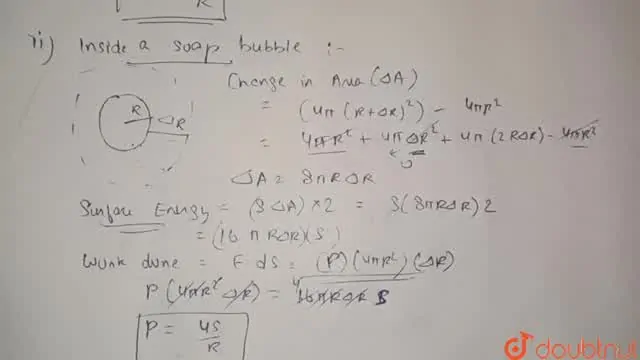 R
ii) Inside a soap bubble :-
Change in Area (ΔA)
R
ΔR
= (4π(R+ΔR)²) - 4πR²
= 4πR² + 4πΔR² + 4π(2RΔR) - 4πR²
0
ΔA = 8πRΔR
Surface Energy = (SΔA) × 2 = S(8πRΔR)2
= (16πRΔR)(S)
Work done = F ds = (P)(4πR²)(ΔR)
P(4πR²ΔR) = 4 16πRΔR S
P = 4S/R
doubtnut